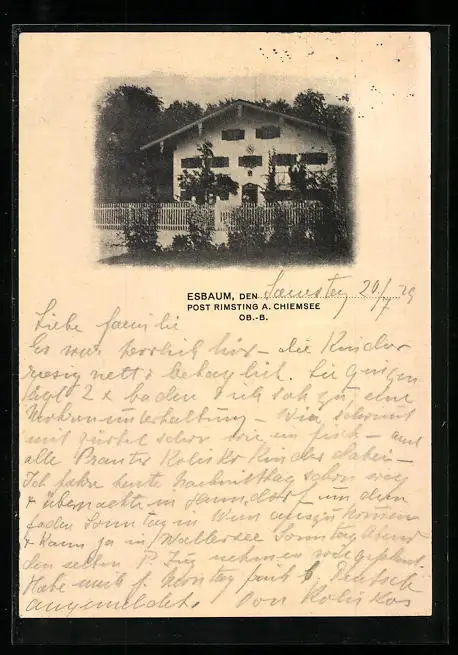 ESBAUM, DEN Samstag 20/7 29
POST RIMSTING A. CHIEMSEE
OB.-B.
Liebe familie
Es war herrlich hier – die Kinder
riesig nett & behaglich. Sie gingen
tägl 2 x baden & ich sah zu, eine
unterhaltung – schwimmt
mit gürtel schon wie ein fisch – auch
alle Kolisko Kinder dabei –
Ich fahre heute Nachmittag schon weg
& übernachte in um den
Sonntag in Wien auszunutzen
& kann ja in Wallersee Sonntag Abend
den selben P. Zug nehmen wie geplant.
Habe mich f. Montag früh b.
angemeldet. Von Koliskos